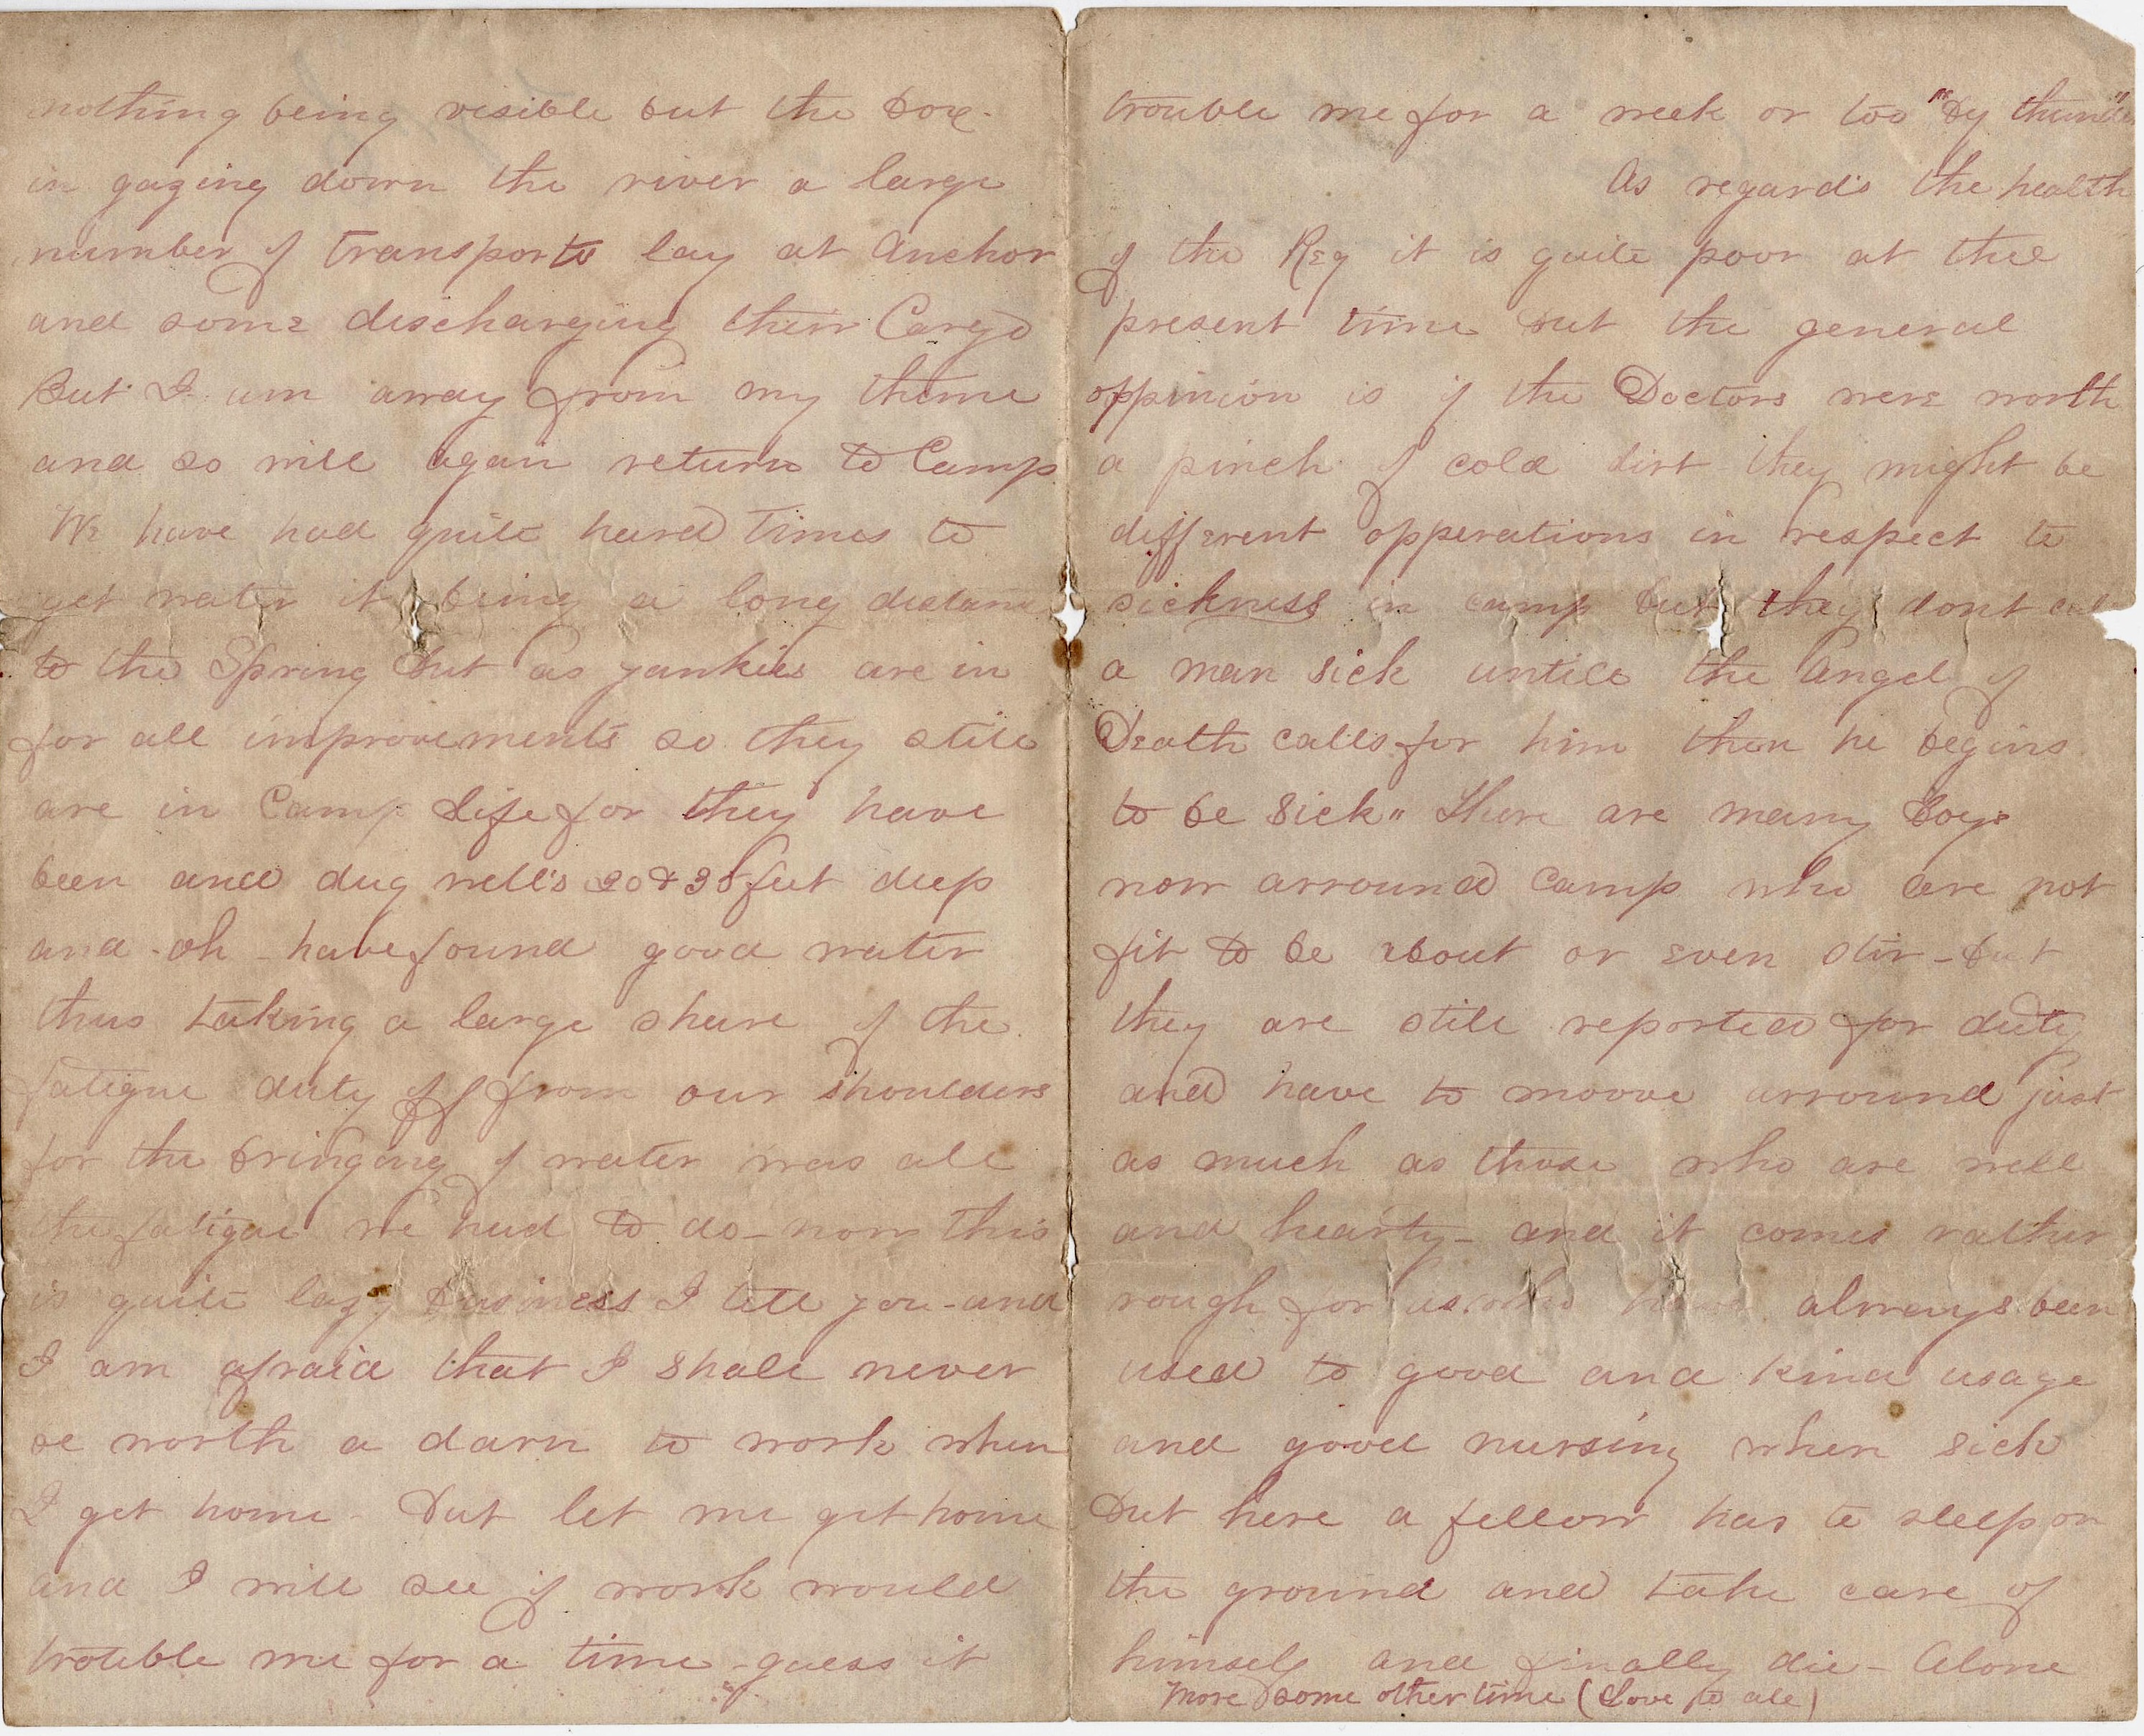 nothing being visible but the box.
in gazing down the river a large
number of transports lay at Anchor
and some discharging their Cargo
But I am away from my theme
and so will again return to Camp
We have had quite hard times to
get water it being a long distance
to the Spring but as yankies are in
for all improvements so they still
are in Camp Life for they have
been and dug well's 20 & 35 feet deep
and - oh - have found good water
thus taking a large share of the
fatigue duty off from our shoulders
for the bringing of water was all
the fatigue we had to do - now this
is quite lazy business I tell you - and
I am afraid that I shall never
be worth a darn to work when
I get home - but let me get home
and I will see if work would
trouble me for a time - guess it
trouble me for a week or too "By thunder"
As regards the health
of the Reg it is quite poor at the
present time but the general
oppinion is if the Doctors were worth
a pinch of cold dirt they might be
different opperations in respect to
sickness in camp but they dont call
a man sick untill the Angel of
Death calls for him then he begins
to be sick" There are many boys
now arround Camp who are not
fit to be about or even stir - but
they are still reported for duty
and have to moove arround just
as much as those who are well
and hearty - and it comes rather
rough for us who have always been
used to good and kind usage
and good nursing when sick
but here a fellow has to sleep on
the ground and take care of
himself and finally die - Alone
More some other time (Love to all)